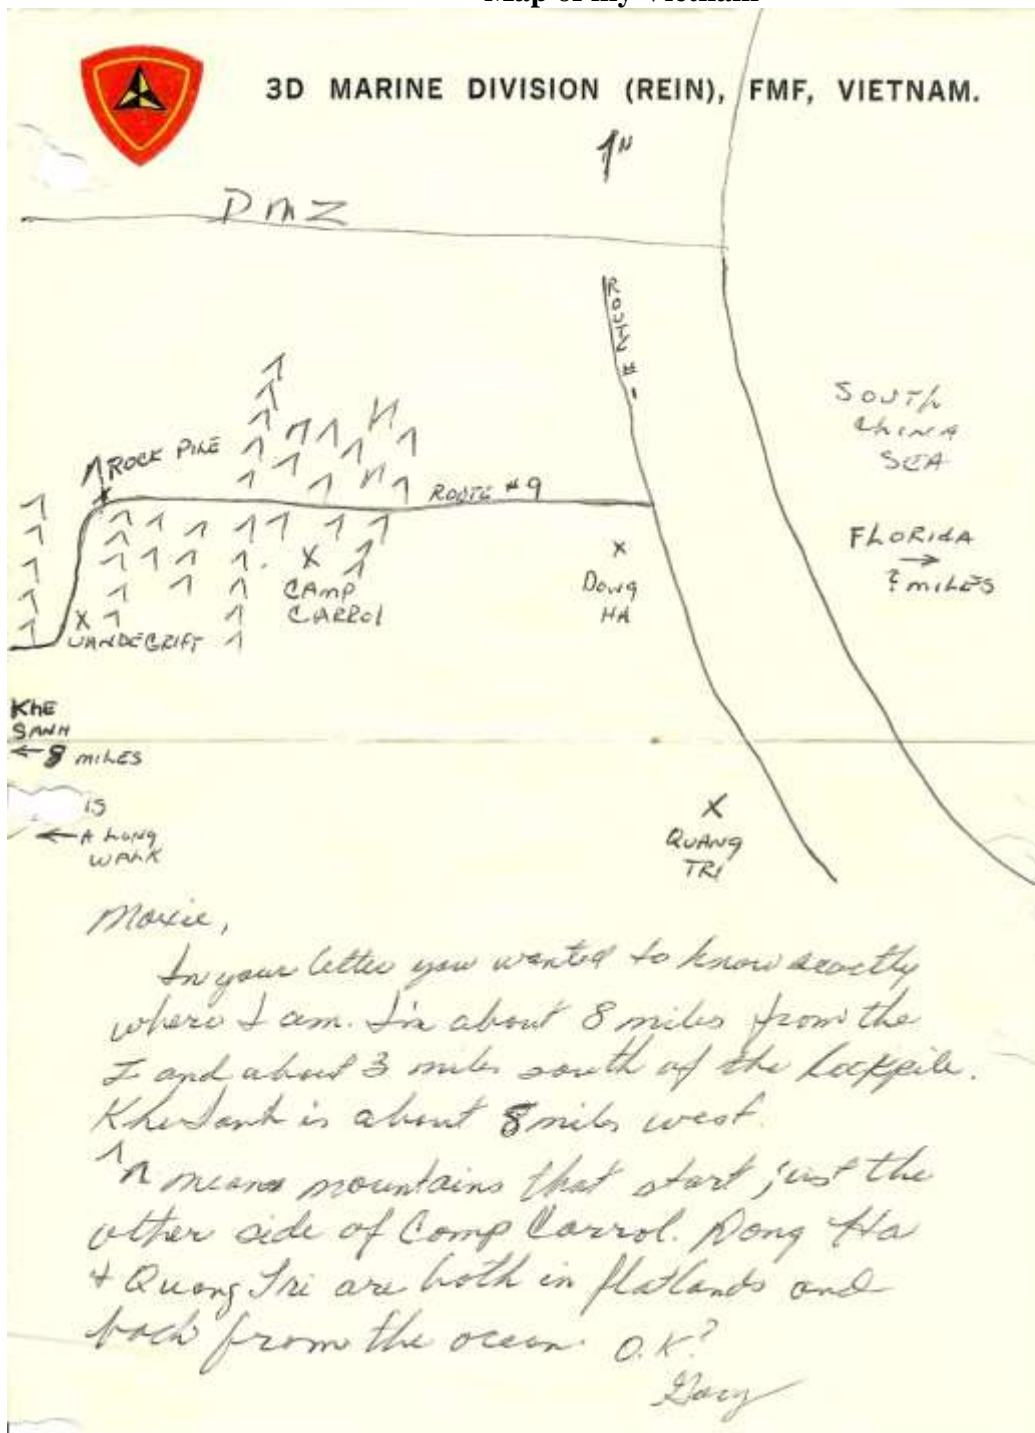 Map of my Vietnam
3D MARINE DIVISION (REIN), FMF, VIETNAM.
N
DMZ
ROUTE #1
SOUTH
CHINA
SEA
ROCK PILE
ROUTE #9
FLORIDA
? MILES
CAMP
CARROL
DONG
HA
VANDEGRIFT
KhE
SANH
8 MILES
IS
A LONG
WALK
QUANG
TRI
Moxie,
In your letter you wanted to know exactly
where I am. I'm about 8 miles from the
Z and about 3 miles south of the Rockpile.
Khe Sanh is about 8 miles west.
means mountains that start just the
other side of Camp Carrol. Dong Ha
+ Quang Tri are both in flatlands and
back from the ocean. O.K?
Gary